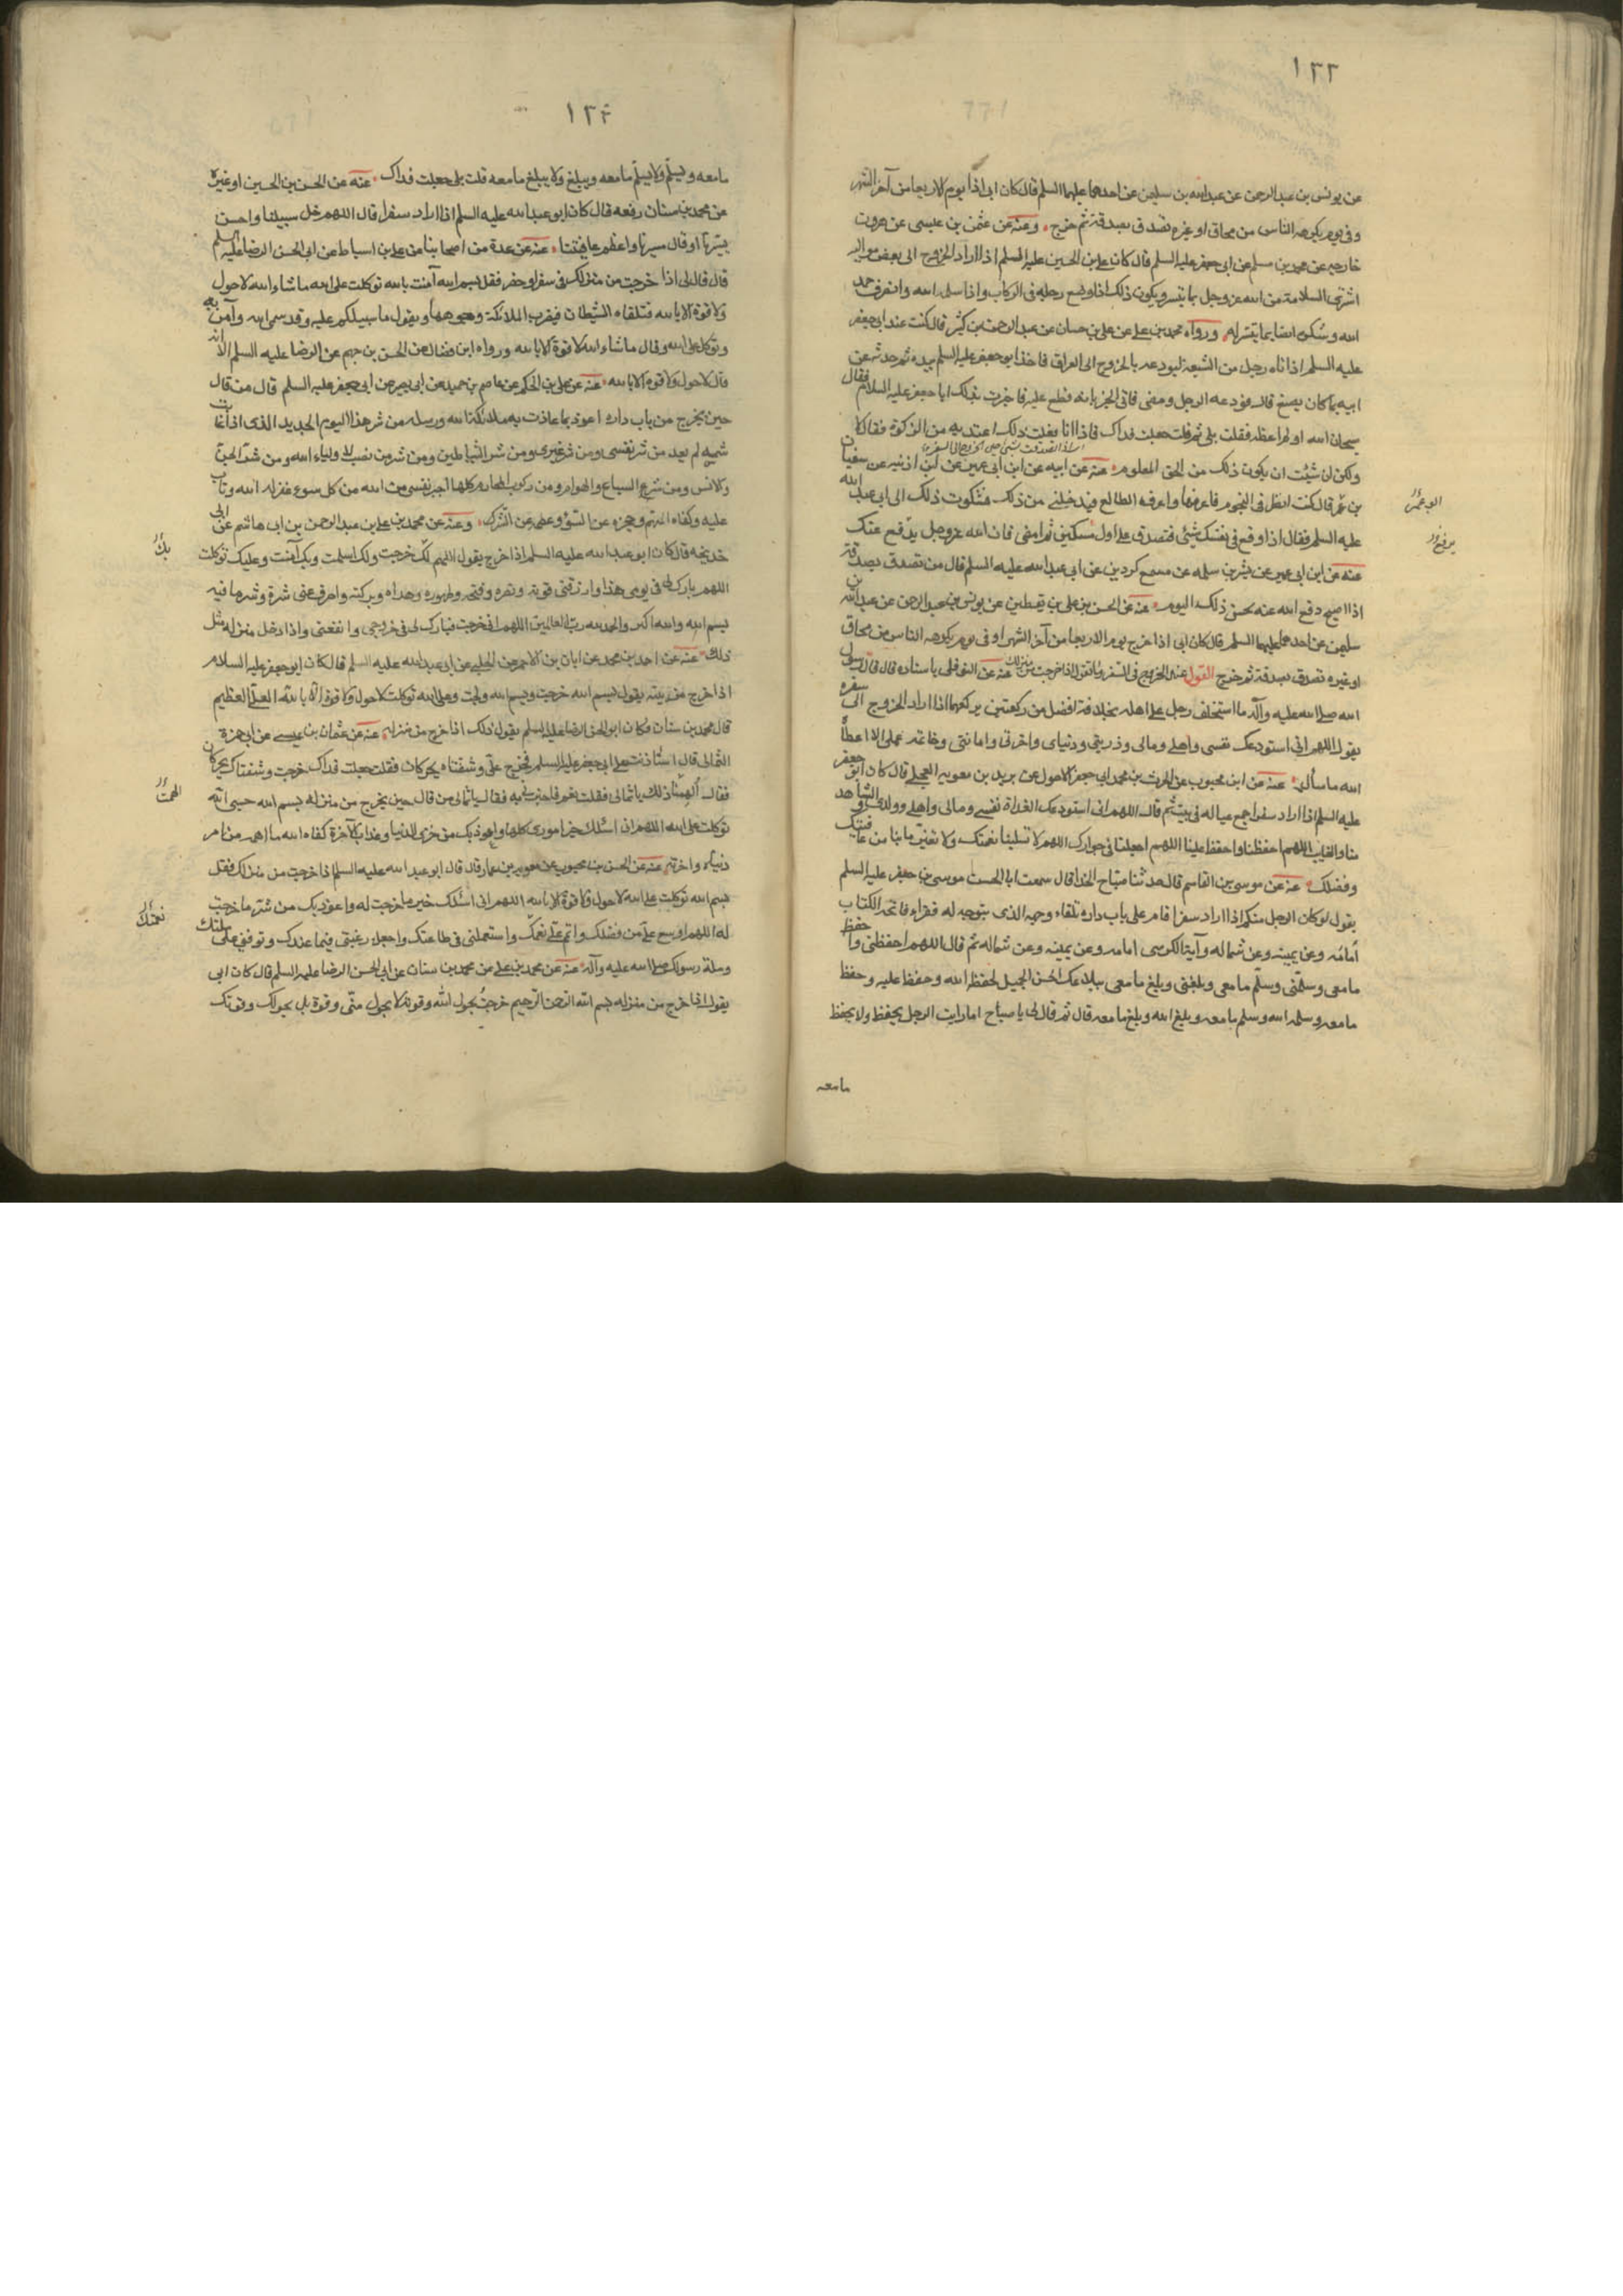 ١٣٣
عن يونس بن عبد الرحمن عن عبد الله بن سليمن عن احدهما عليهما السلم قال كان ابى اذا يوم الاربعا من آخر الشهر
وفى يوم يكرهه الناس من محاق او غيره تصدق بصدقة ثم خرج وعنه عن عثمن بن عيسى عن هرون
خارجه عن محمد بن مسلم عن ابى جعفر عليه السلم قال كان على بن الحسين عليه السلم اذا اراد الخروج الى بعض مواله
اشترى السلامة من الله عز وجل بما يتيسر ويكون ذلك اذا وضع رجله فى الركاب واذا سلمه الله وانصرف حمد
الله وشكره ايضا بما يتيسر له ورواه محمد بن على عن على بن حسان عن عبد الرحمن بن كثير قال كنت عند ابى جعفر
عليه السلم اذ اتاه رجل من الشيعة ليودعه بالخروج الى العراق فاخذ ابو جعفر عليه السلم بيده ثم حدثه عن
ابيه بما كان يصنع قال فودعه الرجل ومضى فاتى الخبر بانه قطع عليه فاخبرت بذلك ابا جعفر عليه السلام فقال
سبحان الله اولم اعظه فقلت بلى ثم قلت جعلت فداك فاذا انا فعلت ذلك اعتد به من الزكوة فقال لا
ولكن ان شئت ان يكون ذلك من الحق المعلوم عنه عن ابيه عن ابن ابى عمير عن ابن اذينه عن سفيان
بن عمر قال كنت انظر فى النجوم فاعرفها واعرف الطالع فيدخلنى من ذلك فشكوت ذلك الى ابى عبد الله
عليه السلم فقال اذا وقع فى نفسك شيئ فتصدق على اول مسكين ثم امض فان الله عز وجل يدفع عنك
عنه عن ابن ابى عمير عن بشر بن سلمه عن مسمع كردين عن ابى عبد الله عليه السلم قال من تصدق بصدقة
اذا اصبح دفع الله عنه نحس ذلك اليوم عنه عن الحسن بن على بن يقطين عن يونس بن عبد الرحمن عن عبد الله بن
سليمن عن احدهما عليهما السلم قال كان ابى اذا خرج يوم الاربعا من آخر الشهر او فى يوم يكرهه الناس من محاق
او غيره تصدق بصدقة ثم خرج القول عند الخروج فى السفر وما تقول اذا خرجت من منزلك عنه عن النوفلى باسناده قال قال رسول
الله صلى الله عليه وآله ما استخلف رجل على اهله بخلافة افضل من ركعتين يركعهما اذا اراد الخروج الى سفره
يقول اللهم انى استودعك نفسى واهلى ومالى وذريتى ودنياى واخرتى وامانتى وخاتمه عملى الا اعطاه
الله ما سأله عنه عن ابن محبوب عن الحرث بن محمد ابى جعفر الاحول عن بريد بن معويه العجلى قال كان ابو جعفر
عليه السلم اذا اراد سفرا جمع عياله فى بيت ثم قال اللهم انى استودعك الغداة نفسى ومالى واهلى وولدى الشاهد
منا والغايب اللهم احفظنا واحفظ علينا اللهم اجعلنا فى جوارك اللهم لا تسلبنا نعمتك ولا تغير ما بنا من عافيتك
وفضلك عنه عن موسى بن القاسم قال حدثنا صباح الحذا قال سمعت ابا الحسن موسى بن جعفر عليه السلم
يقول لو كان الرجل منكم اذا اراد سفرا قام على باب داره تلقاء وجهه الذى يتوجه له فقراء فاتحة الكتاب
امامه وعن يمينه وعن شماله وآية الكرسى امامه وعن يمينه وعن شماله ثم قال اللهم احفظنى واحفظ
ما معى وسلمنى وسلم ما معى وبلغنى وبلغ ما معى ببلاغك الحسن الجميل لحفظه الله وحفظ عليه وحفظ
ما معه وسلمه الله وسلم ما معه وبلغه الله وبلغ ما معه قال ثم قال لى يا صباح اما رايت الرجل يحفظ ولا يحفظ
ما معه
١٣٤
ما معه ويسلم ولا يسلم ما معه ويبلغ ولا يبلغ ما معه قلت بلى جعلت فداك عنه عن الحسن بن الحسين او غيره
عن محمد بن سنان رفعه قال كان ابو عبد الله عليه السلم اذا اراد سفرا قال اللهم خل سبيلنا واحسن
يسيرنا او قال مسيرنا واعظم عافيتنا عنه عن عدة من اصحابنا عن على بن اسباط عن ابى الحسن الرضا عليه السلم
قال قال لى اذا خرجت من منزلك فى سفر او حضر فقل بسم الله آمنت بالله توكلت على الله ما شاء الله لا حول
ولا قوة الا بالله فتلقاه الشيطان فيضرب الملائكة وجوهها ويقول ما سبيلكم عليه وقد سمى الله وآمن به
وتوكل على الله وقال ما شاء الله لا قوة الا بالله ورواه ابن فضال عن الحسن بن جهم عن الرضا عليه السلم الا انه
قال لا حول ولا قوة الا بالله عنه عن على بن الحكم عن عاصم بن حميد عن ابى بصير عن ابى جعفر عليه السلم قال من قال
حين يخرج من باب داره اعوذ بما عاذت به ملائكة الله ورسله من شر هذا اليوم الجديد الذى اذا غابت
شمسه لم يعد من شر نفسى ومن شر غيرى ومن شر الشياطين ومن شر من نصب لاولياء الله ومن شر الجن
والانس ومن شر السباع والهوام ومن ركوب المحارم كلها اجير نفسى من الله من كل سوء غفر له الله وتاب
عليه وكفاه المهم وحجزه عن السوء وعصمه عن الشرك وعنه عن محمد بن على بن عبد الرحمن بن ابى هاشم عن ابى
خديجه قال كان ابو عبد الله عليه السلم اذا خرج يقول اللهم لك خرجت ولك اسلمت وبك آمنت وعليك توكلت
اللهم بارك لى فى يومى هذا وارزقنى قوته ونصره وفتحه وطهوره وهداه وبركته واصرف عنى شره وشر ما فيه
بسم الله والله اكبر والحمد لله رب العالمين اللهم انى خرجت فبارك لى فى خروجى وانفعنى واذا دخل منزله مثل
ذلك عنه عن احمد بن محمد عن ابان بن الاحمر عن الحلبى عن ابى عبد الله عليه السلم قال كان ابو جعفر عليه السلام
اذا خرج من بيته يقول بسم الله خرجت وبسم الله ولجت وعلى الله توكلت لا حول ولا قوة الا بالله العلى العظيم
قال محمد بن سنان فكان ابو الحسن الرضا عليه السلم يقول ذلك اذا خرج من منزله عنه عن عثمان بن عيسى عن ابى حمزة
الثمالى قال استاذنت على ابى جعفر عليه السلم فخرج على وشفتاه يحركان فقلت جعلت فداك خرجت وشفتاك يحركان
فقال الهمنا ذلك يا ثمالى فقلت نعم فاخبرنى به فقال يا ثمالى من قال حين يخرج من منزله بسم الله حسبى الله
توكلت على الله اللهم انى اسئلك خير امورى كلها واعوذ بك من خزى الدنيا وعذاب الآخرة كفاه الله ما اهمه من امر
دنياه واخرته عنه عن الحسن بن محبوب عن معويه بن عمار قال قال ابو عبد الله عليه السلم اذا خرجت من منزلك فقل
بسم الله توكلت على الله لا حول ولا قوة الا بالله اللهم انى اسئلك خير ما خرجت له واعوذ بك من شر ما خرجت
له اللهم اوسع على من فضلك واتم على نعمك واستعملنى فى طاعتك واجعل رغبتى فيما عندك وتوفنى على ملتك
وملة رسولك صلى الله عليه وآله عنه عن محمد بن على عن محمد بن سنان عن ابى الحسن الرضا عليه السلم قال كان ابى
يقول اذا خرج من منزله بسم الله الرحمن الرحيم خرجت بحول الله وقوته لا بحول منى وقوة بل بحولك وقوتك
بك
الهمت
نعمتك